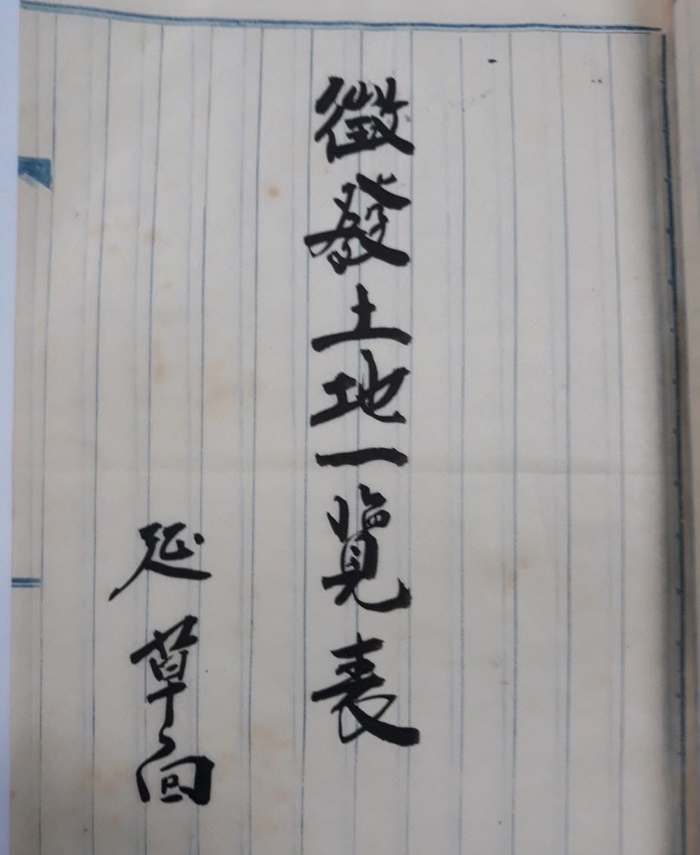 徵發土地一覽表
延草面